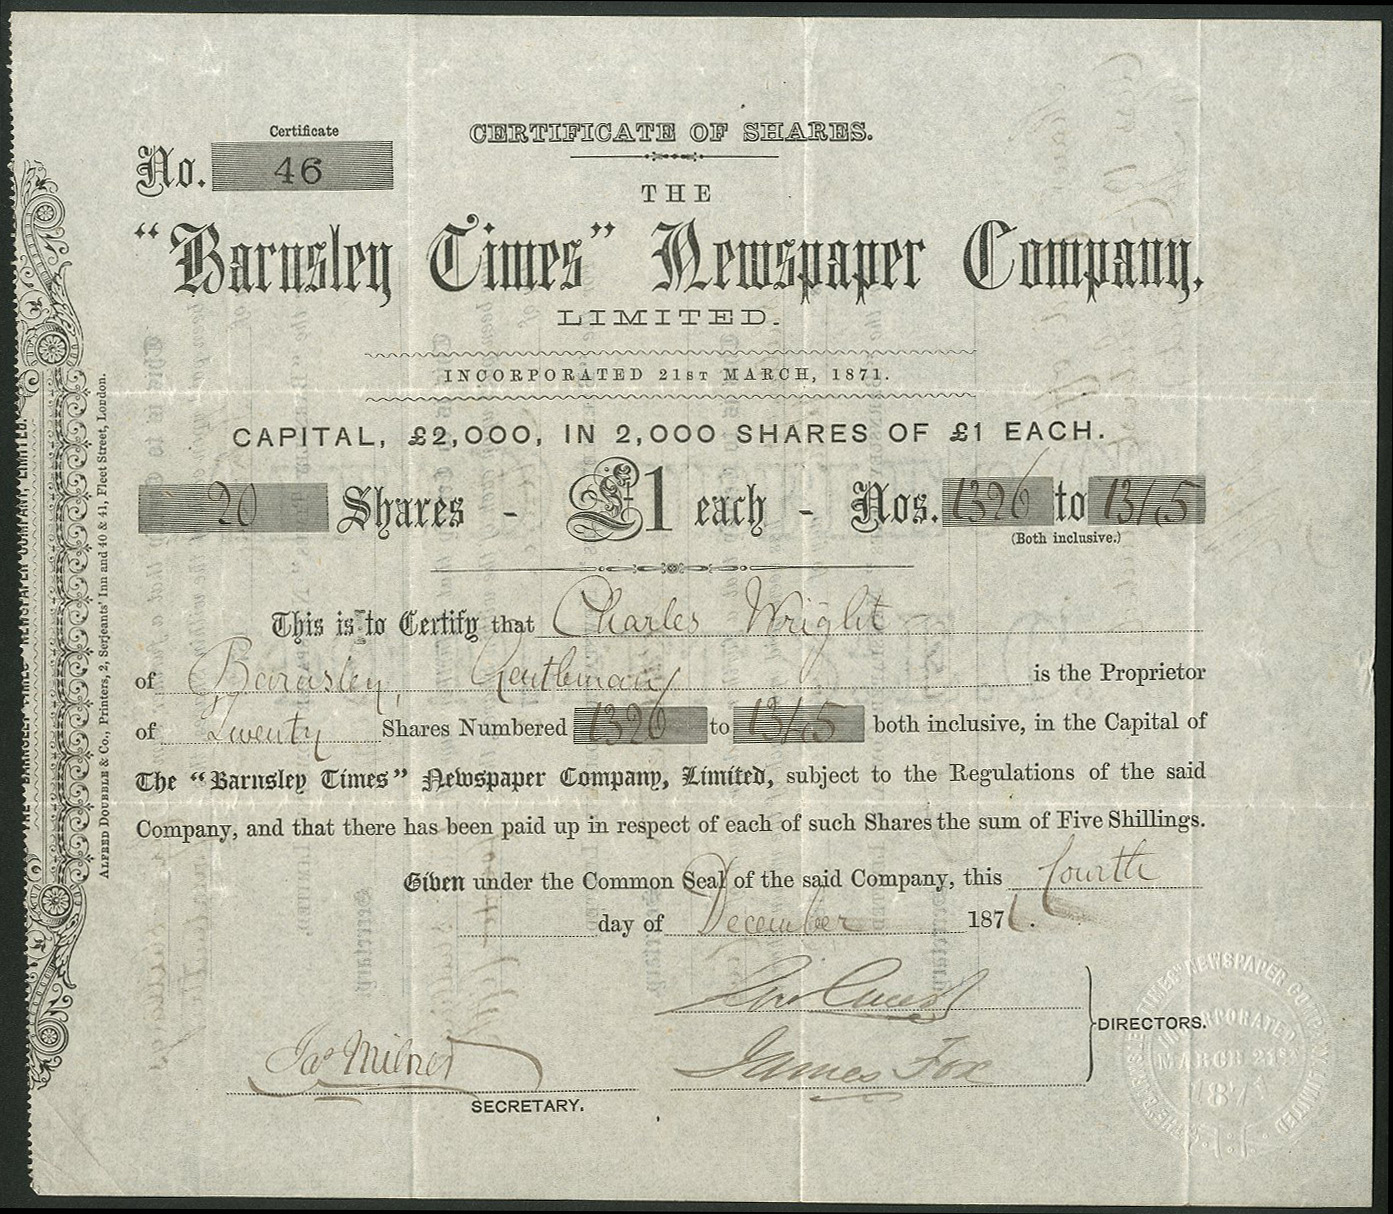 Certificate
No. 46
CERTIFICATE OF SHARES.
THE
"Barnsley Times" Newspaper Company.
LIMITED.
INCORPORATED 21ST MARCH, 1871.
CAPITAL, £2,000, IN 2,000 SHARES OF £1 EACH.
20 Shares - £1 each - Nos. 1326 to 1345
(Both inclusive.)
This is to Certify that Charles Wright
of Barnsley, Gentleman is the Proprietor
of Twenty Shares Numbered 1326 to 1345 both inclusive, in the Capital of
The "Barnsley Times" Newspaper Company, Limited, subject to the Regulations of the said
Company, and that there has been paid up in respect of each of such Shares the sum of Five Shillings.
Given under the Common Seal of the said Company, this fourth
day of December 1871.
James Fox
DIRECTORS.
Jas Milner
SECRETARY.
ALFRED DOUBBLE & Co., Printers, 2, Serjeants' Inn and 40 & 41, Fleet Street, London.
THE "BARNSLEY TIMES" NEWSPAPER COMPANY LIMITED
INCORPORATED
MARCH 21ST
1871